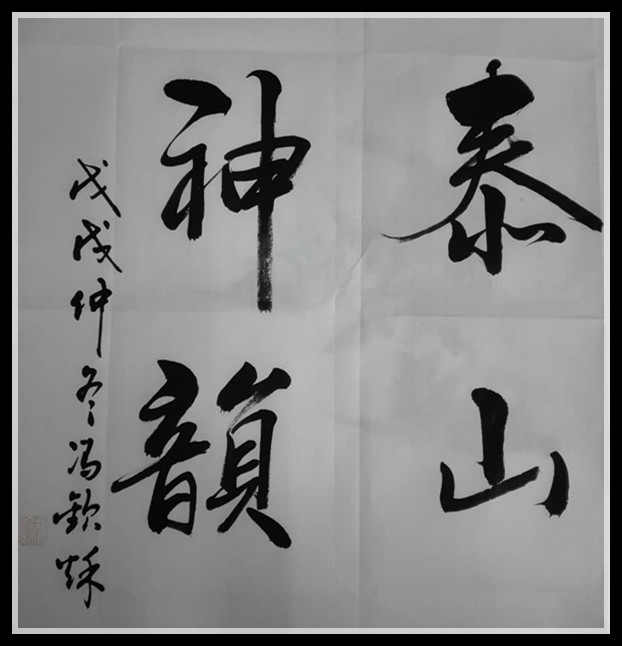 泰山
神韻
戊戌仲冬冯欽烁